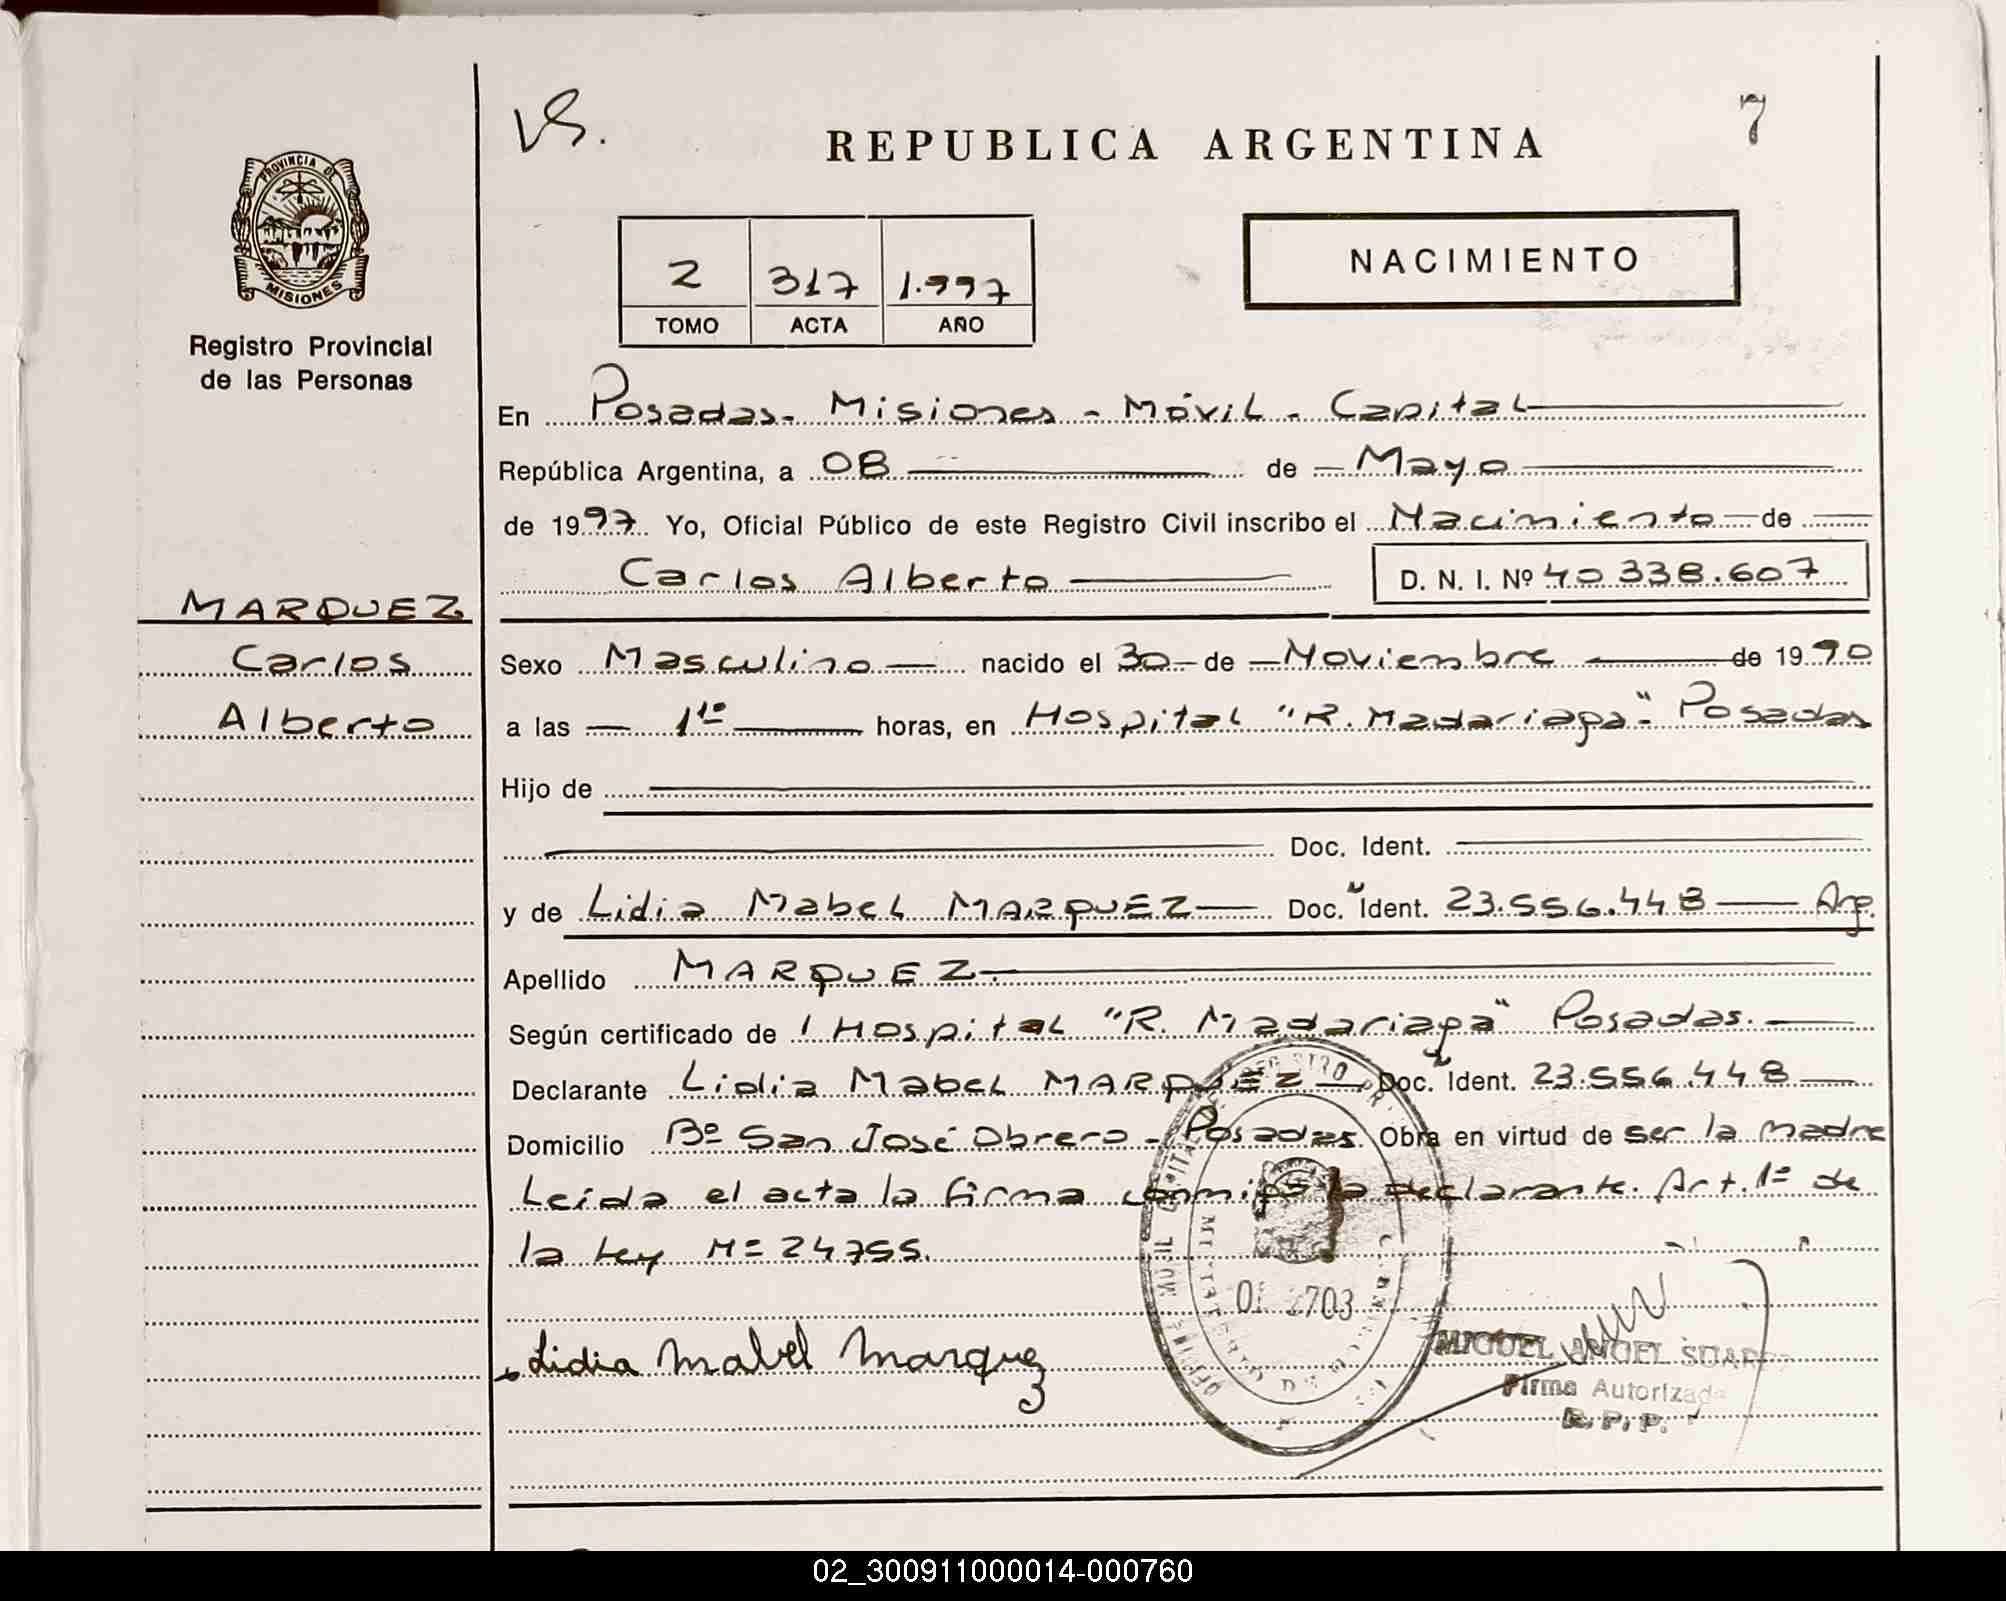 VS.
REPUBLICA ARGENTINA
7
PROVINCIA DE
MISIONES
Registro Provincial
de las Personas
2 317 1.997
TOMO ACTA AÑO
NACIMIENTO
En Posadas - Misiones - Móvil - Capital
República Argentina, a 08 de Mayo
de 1997 Yo, Oficial Público de este Registro Civil inscribo el Nacimiento de
Carlos Alberto D. N. I. Nº 40.338.607
MARQUEZ
Carlos
Alberto
Sexo Masculino nacido el 30 de Noviembre de 1990
a las 11º horas, en Hospital "R. Madariaga". Posadas
Hijo de
Doc. Ident.
y de Lidia Mabel MARQUEZ Doc. Ident. 23.556.448 Arg.
Apellido MARQUEZ.
Según certificado de l Hospital "R. Madariaga" Posadas.
Declarante Lidia Mabel MARQUEZ Doc. Ident. 23.556.448
Domicilio Bº San José Obrero - Posadas. Obra en virtud de ser la madre
Leída el acta la firma conmigo la declarante. Art. 1º de
la Ley Nº 24755.
2703
Lidia Mabel Marquez
MIGUEL ANGEL SUAREZ
Firma Autorizada
R. P. P.
02_300911000014-000760